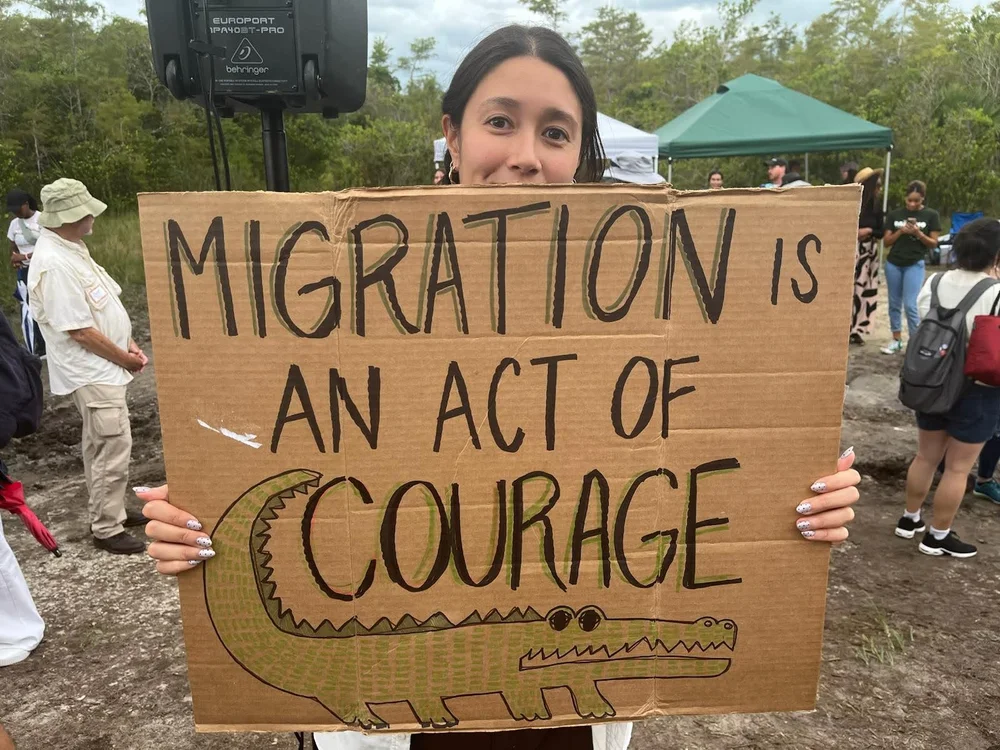 EUROPORT
MPA40BT-PRO
behringer
MIGRATION IS
AN ACT OF
COURAGE